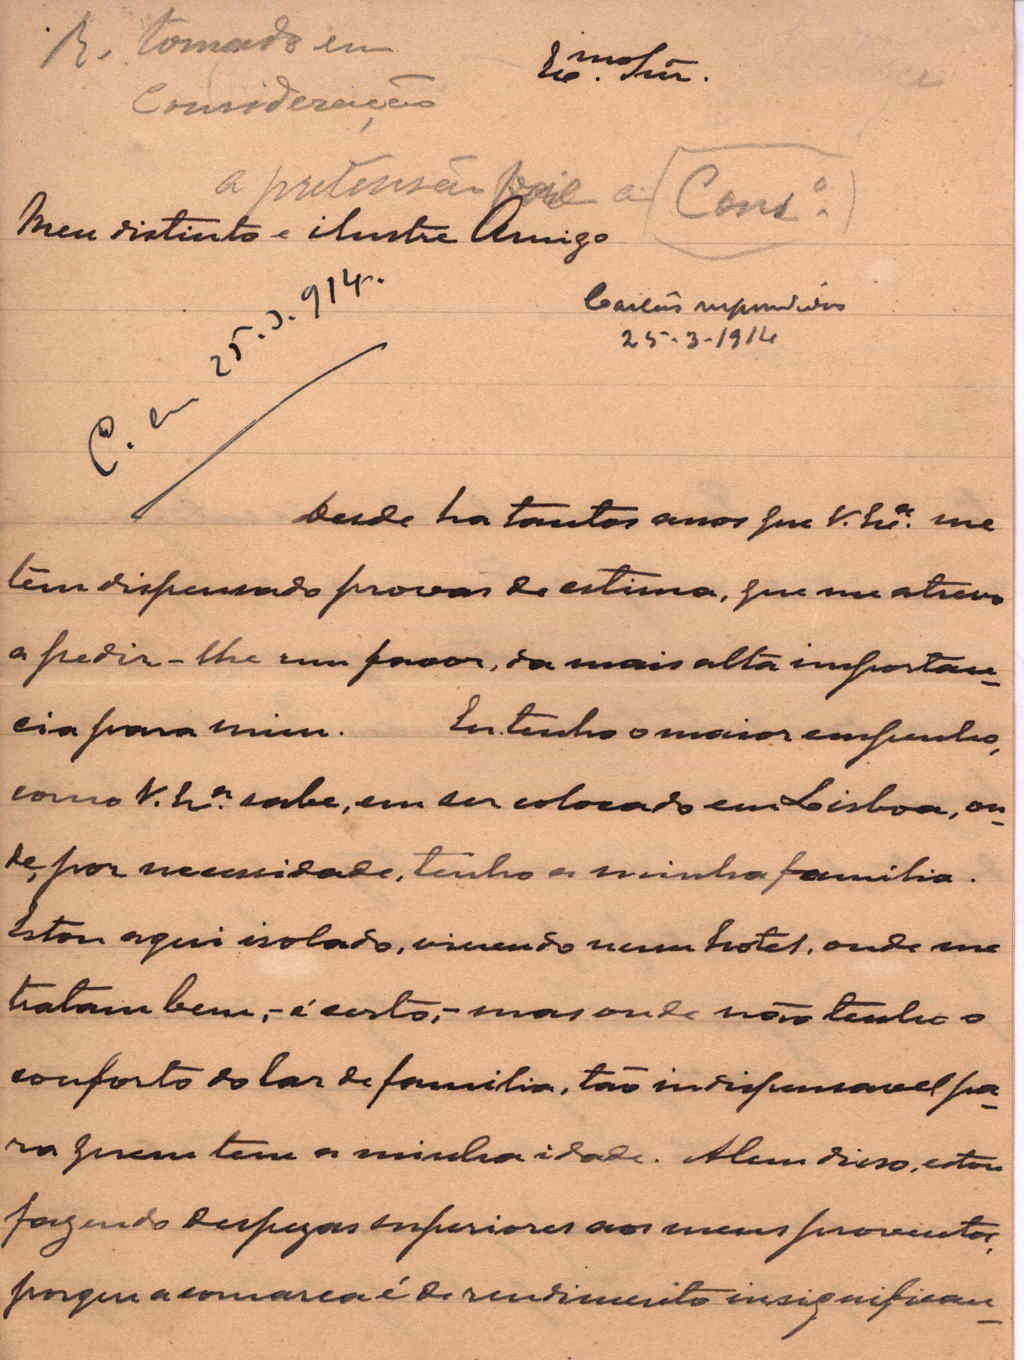 R. tomado em
Consideração
Ex.mo Snr.
a pretensão a Cons.o
Meu distinto e ilustre Amigo
C. em 25.3.914.
respondidos
25-3-1914
Desde ha tantos anos que V. Ex.a me
têm dispensado provas de estima, que me atrevo
a pedir-lhe um favor, da mais alta importan-
cia para mim. Eu tenho o maior empenho,
como V. Ex.a sabe, em ser colocado em Lisboa, on-
de, por necessidade, tenho a minha familia.
Estou aqui isolado, vivendo num hotel, onde me
tratam bem,- é certo,- mas onde não tenho o
conforto do lar de familia, tão indispensavel pa-
ra quem tem a minha idade. Alem disso, estou
fazendo despezas superiores aos meus proventos,
porque a comarca é de rendimento insignifican-